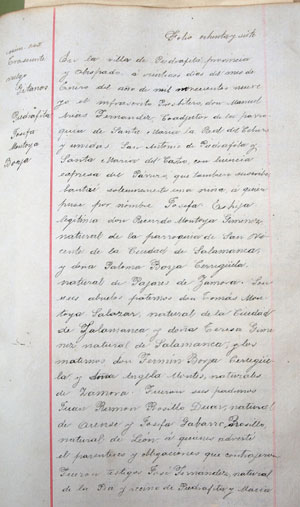 Folio ochenta y siete
Transeunte
Gitanos
Piedrafita
Josefa
Montoya
Borja
En la villa de Piedrafita, provincia
y obispado, a veintiseis dias del mes de
Enero del año de mil novecientos nueve
yo el infrascrito Presbítero, don Manuel
Arias Fernandez, Coadjutor de la parro
quia de Santa Maria la Real del Cebrero
y unidas San Antonio de Piedrafita y
Santa Maria del Castro, con licencia
espresa del Párroco que tambien suscribe,
bauticé solemnemente una niña, á quien
puse por nombre Josefa, es hija
legitima don Ricardo Montoya Jimenez,
natural de la parroquia de San
de la Ciudad de Salamanca,
y doña Paloma Borja Cerreguela,
natural de Pajares de Zamora. Son
sus abuelos paternos don Tomás Mon
toya Salazar, natural de la Ciudad
de Salamanca y doña Teresa Jime
nez natural de Salamanca; y los
maternos don Fermin Borja Cerregue
la y doña Angela Montes, naturales
de Zamora. Fueron sus padrinos
Juan Ramon Rosillo Duar, natural
de Orense y Josefa Gabarro Rosillo,
natural de Leon, á quienes advertí
el parentesco y obligaciones que contrajeron
Fueron testigos José Fernandez, natural
de la y vecino de Piedrafita y Maria